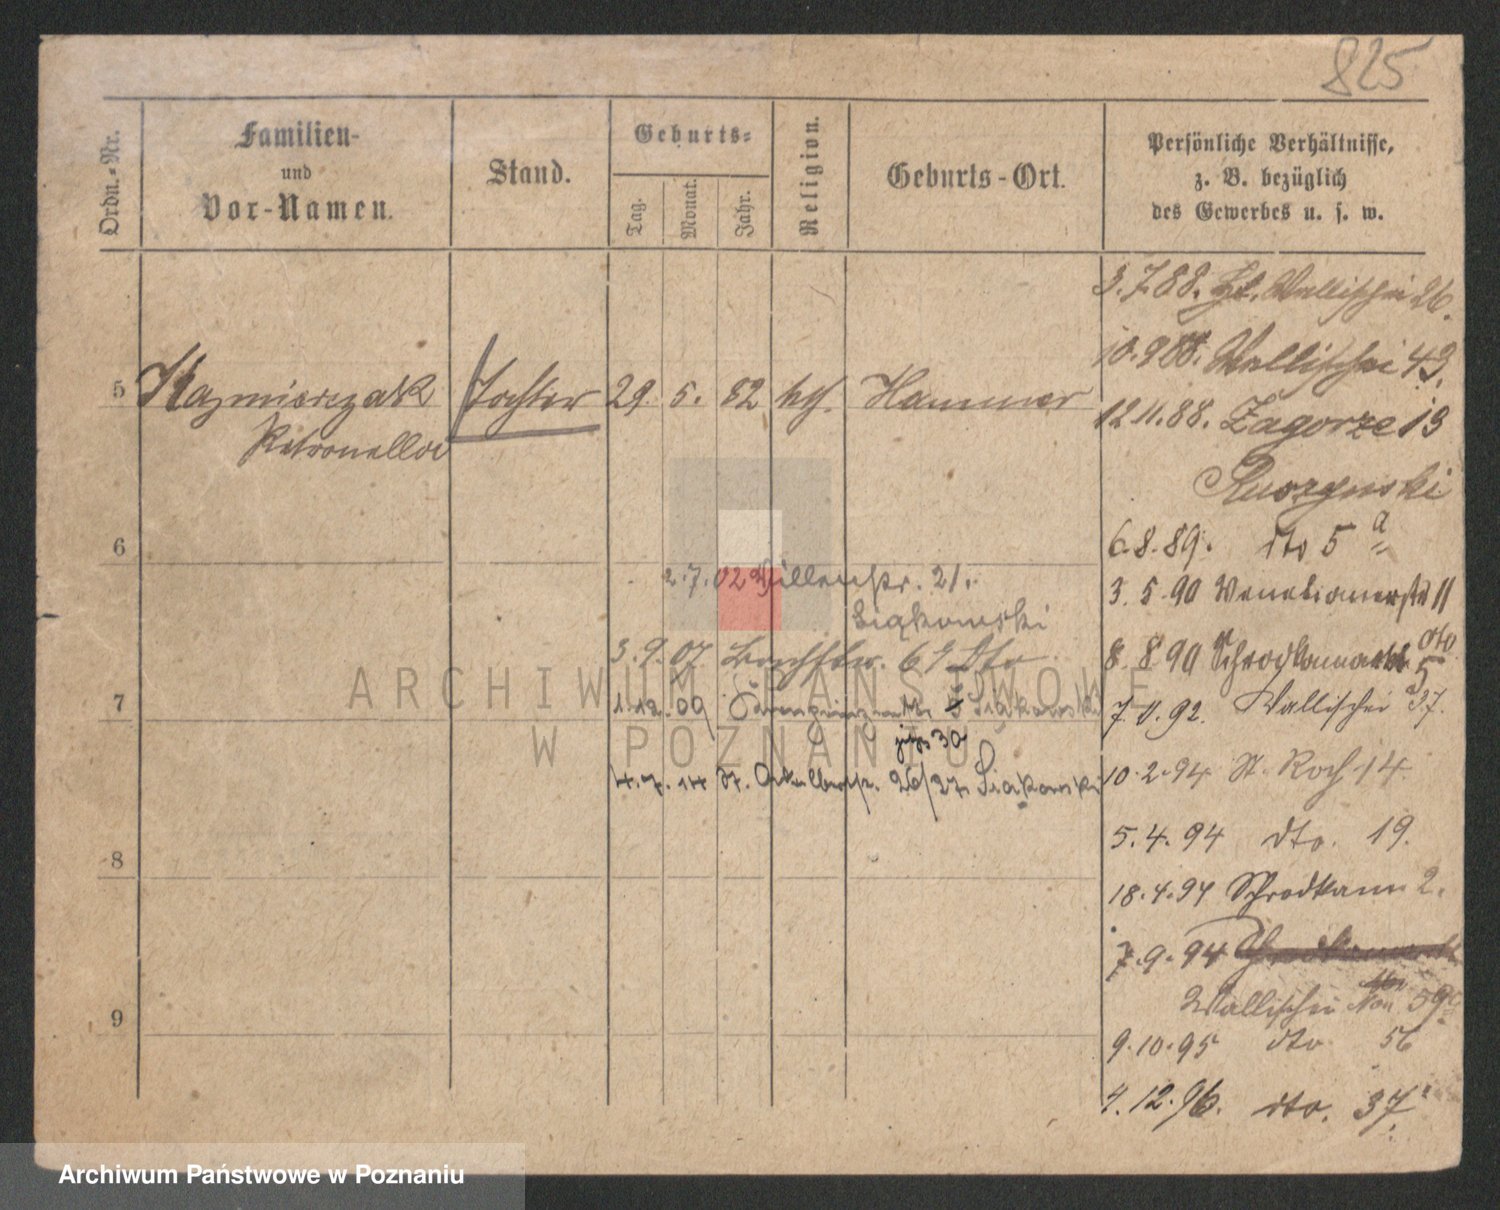 825
Ordn.-Nr.
Familien-
und
Vor-Namen.
Stand.
Geburts-
Tag.
Monat.
Jahr.
Religion.
Geburts-Ort.
Persönliche Verhältnisse,
z. B. bezüglich
des Gewerbes u. s. w.
3.7.88. Wallischei 26.
10.9.88. Wallischei 43.
5 Kazmierczak Tochter 29. 5. 82 kth. Hammer
Petronella
12.11.88. Zagorze 13
6.8.89. dto 5 a
6
3.5.90 Venetianerstr 11
2.7.02 21.
Siąkowski
8.8.90 Schrodkamarkt 5
dto
3.9.07 dto
7
1.12.09 Siąkowski
30
7.9.92. Wallischei 37.
4.7.14 26/27 Siąkowski
10.2.94 St. Roch 14.
5.4.94 dto. 19.
8
18.4.94 Schrodkam 2.
7.9.94
Wallischei
9
9.10.95 dto 56
4.12.96. dto. 37.
ARCHIWUM PAŃSTWOWE
W POZNANIU
Archiwum Państwowe w Poznaniu